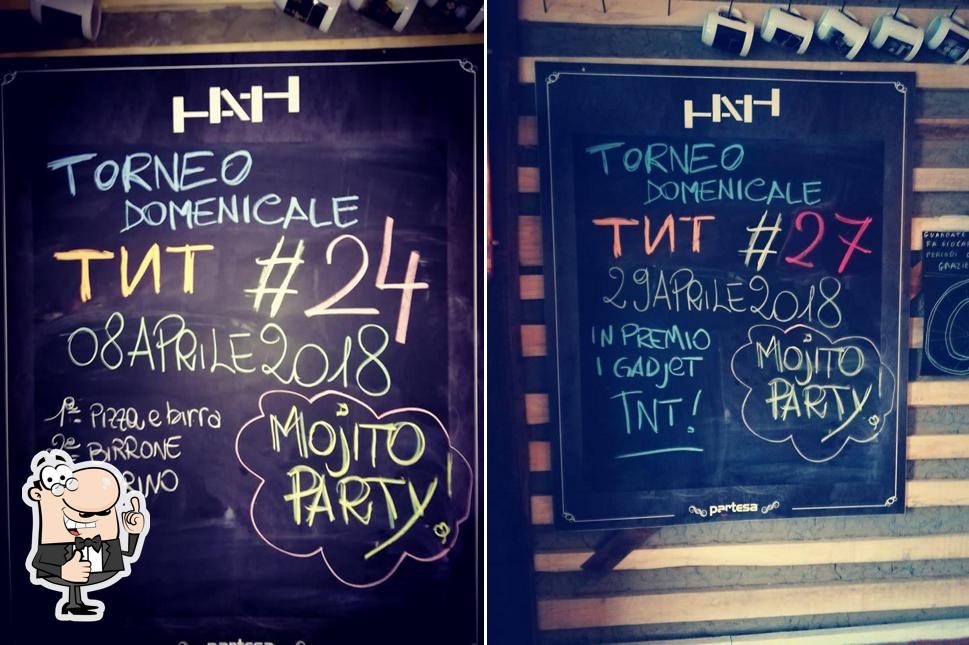 HAH
TORNEO
DOMENICALE
TNT #24
08 APRILE 2018
1º= Pizza e birra
2º= BIRRONE
MOJITO
PARTY!
HAH
TORNEO
DOMENICALE
TNT #27
29 APRILE 2018
IN PREMIO
I GADJET
TNT!
MOJITO
PARTY!
partesa
GUARDATE
FA GIOCA
PERIODI
GRAZIE